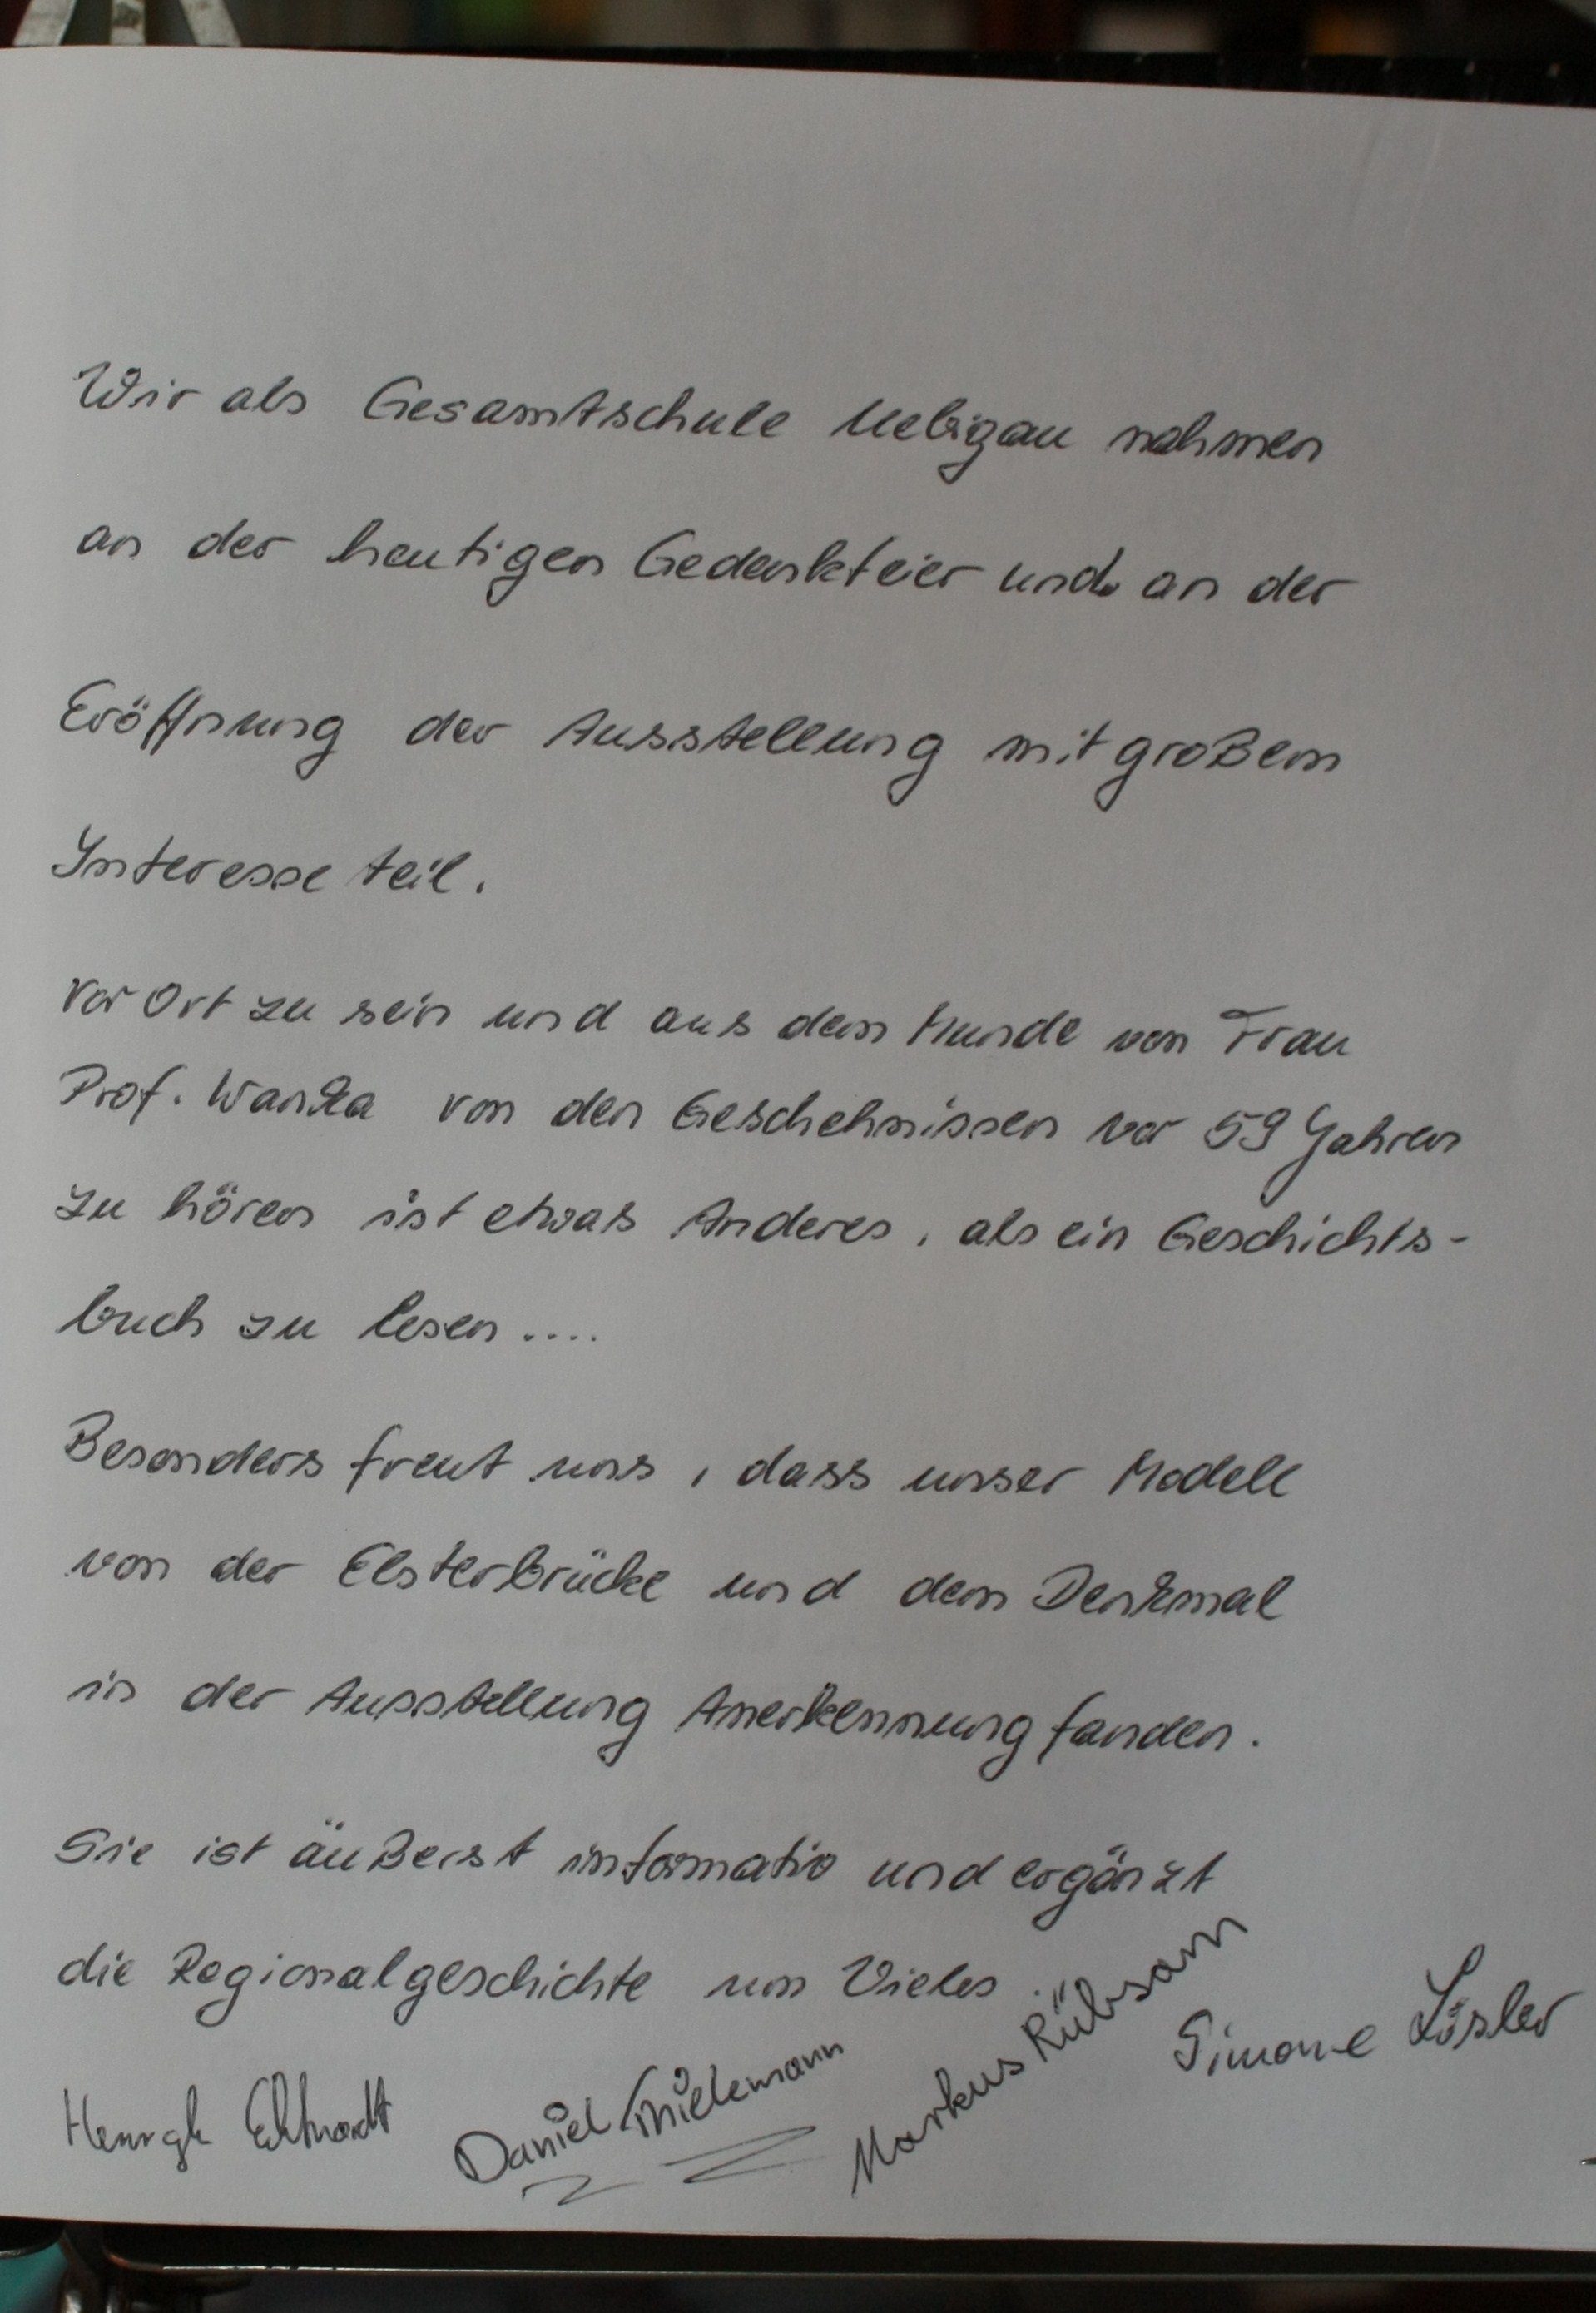 Wir als Gesamtschule Uebigau nahmen
an der heutigen Gedenkfeier und an der
Eröffnung der Ausstellung mit großem
Interesse teil.
Vor Ort zu sein und aus dem Munde von Frau
Prof. Wanka von den Geschehnissen vor 59 Jahren
zu hören ist etwas Anderes, als ein Geschichts-
buch zu lesen....
Besonders freut uns, dass unser Modell
von der Elsterbrücke und dem Denkmal
in der Ausstellung Anerkennung fanden.
Sie ist äußerst informativ und ergänzt
die Regionalgeschichte um Vieles.
Markus Rübsam
Simone Lösler
Daniel Thielemann